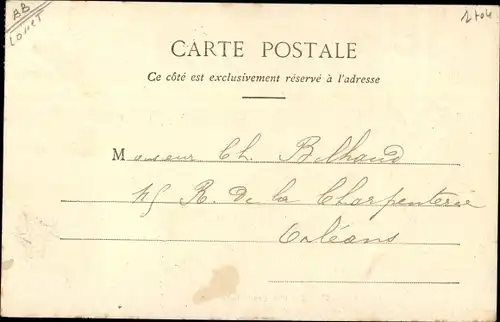 BB
LOIRET
CARTE POSTALE
Ce côté est exclusivement réservé à l'adresse
Monsieur Ch. Bilhaud
45 R. de la Charpenterie
Orléans